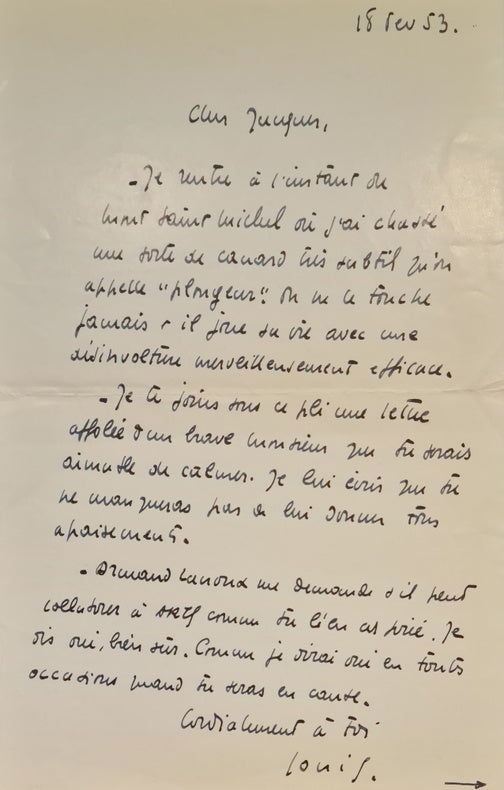 18 Fev 53.
Cher Jacques,
- Je rentre à l'instant du
Mont Saint Michel où j'ai chassé
une sorte de canard très subtil qu'on
appelle "plongeur". On ne le touche
jamais & il joue sa vie avec une
désinvolture merveilleusement efficace.
- Je te joins sous ce pli une lettre
affolée d'un brave Monsieur que tu serais
aimable de calmer. Je lui écris que tu
ne manqueras pas de lui donner tous
apaisements.
- Armand Lanoux me demande s'il peut
collaborer à comme tu l'en as prié. Je
dis oui, bien sûr. Comme je dirai oui en toutes
occasions quand tu seras en cause.
Cordialement à toi
Louis.